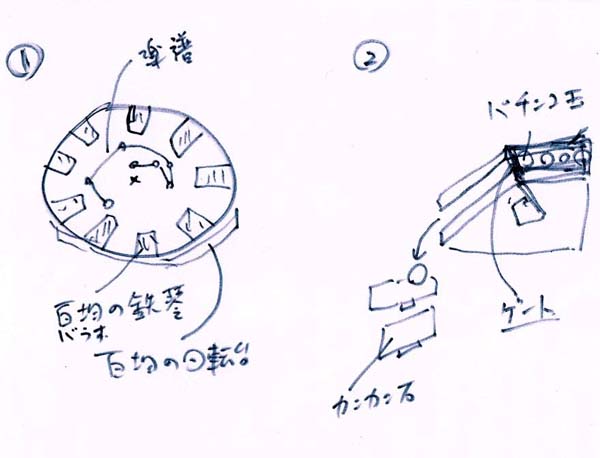 ①
楽譜
百均の鉄琴
バラす
百均の回転台
②
パチンコ玉
ゲート
カンカン石